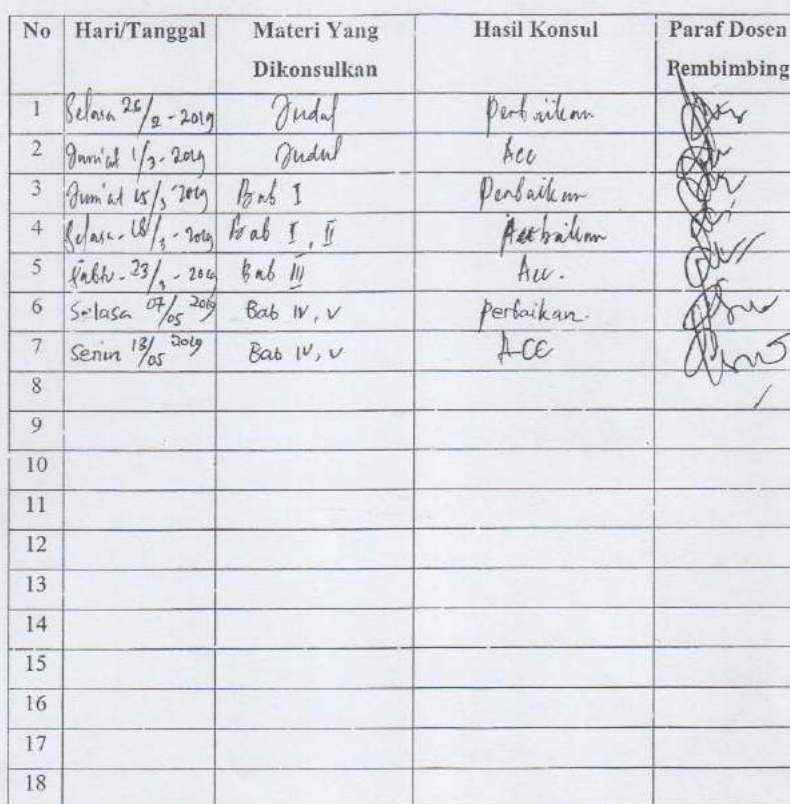 No Hari/Tanggal Materi Yang Dikonsulkan Hasil Konsul Paraf Dosen Pembimbing
1 Selasa 26/2 - 2019 Judul Perbaikan
2 Jum'at 1/3 - 2019 Judul Acc
3 Jum'at 15/3 - 2019 Bab I Perbaikan
4 Selasa - /3 - 2019 Bab I, II Perbaikan
5 Sabtu - 23/3 - 2019 Bab III Acc.
6 Selasa 07/05 2019 Bab IV, V perbaikan.
7 Senin 13/05 2019 Bab IV, V ACC
8
9
10
11
12
13
14
15
16
17
18